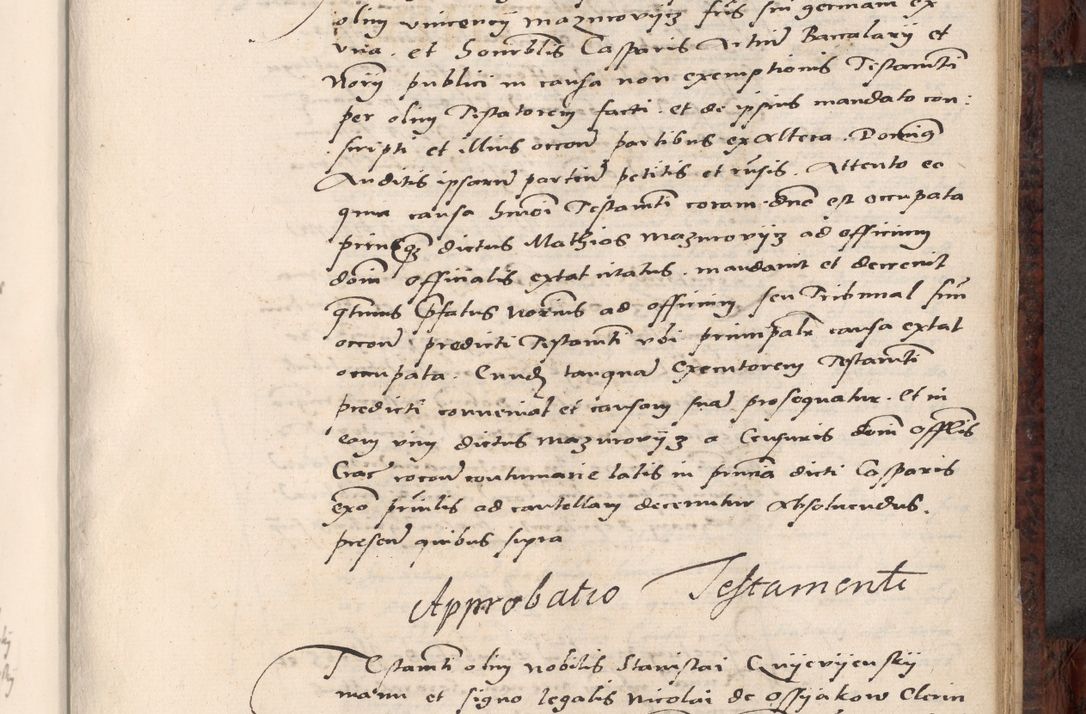 olim vincencij mazurovijz frīs sui germani ex
vna . et honorblis Casparis Artiū Baccalarij et
Norij publici in causa non exemptionis Testamti
per olim Testatorem facti . et de ipsius mandato con:
scripti et illius occone partibus ex altera . Domin9
Auditis ipsarū partiū petitis et . Attento eo
quia causa hmoi Testamti coram dno est occupata
dictus Mathias mazurovijz ad officium
domi officialis extat citatus . mandavit et decrevit
qtenus pfatus Norius ad officium seu Tribunal sm
occone predicti Testamti vbi principalr causa extat
occupata . tanquā executorem Testamti
predicti conveniat et causam suā prosequatur . Et in
eam vim dictus mazurovijz a Censuris domi offlis
Crac contumacie latis in pncia dicti Casparis
ad cautellam decernitur Absolvendus .
presen quibus supra
Approbatio Testamenti
Testamti olim nobilis Stanislai
manu et signo legalis Nicolai de Ossyakow Clerici